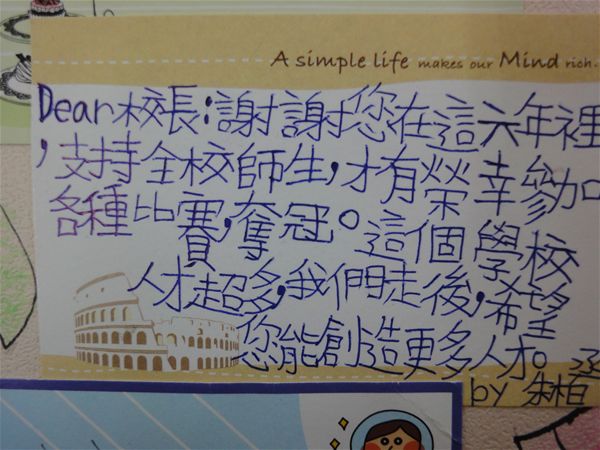 A simple life makes our Mind rich.
Dear 校長:謝謝您在這六年裡
,支持全校師生,才有榮幸參加
各種比賽,奪冠。這個學校
人才超多,我們走後,希望
您能創造更多人才。
by 朱